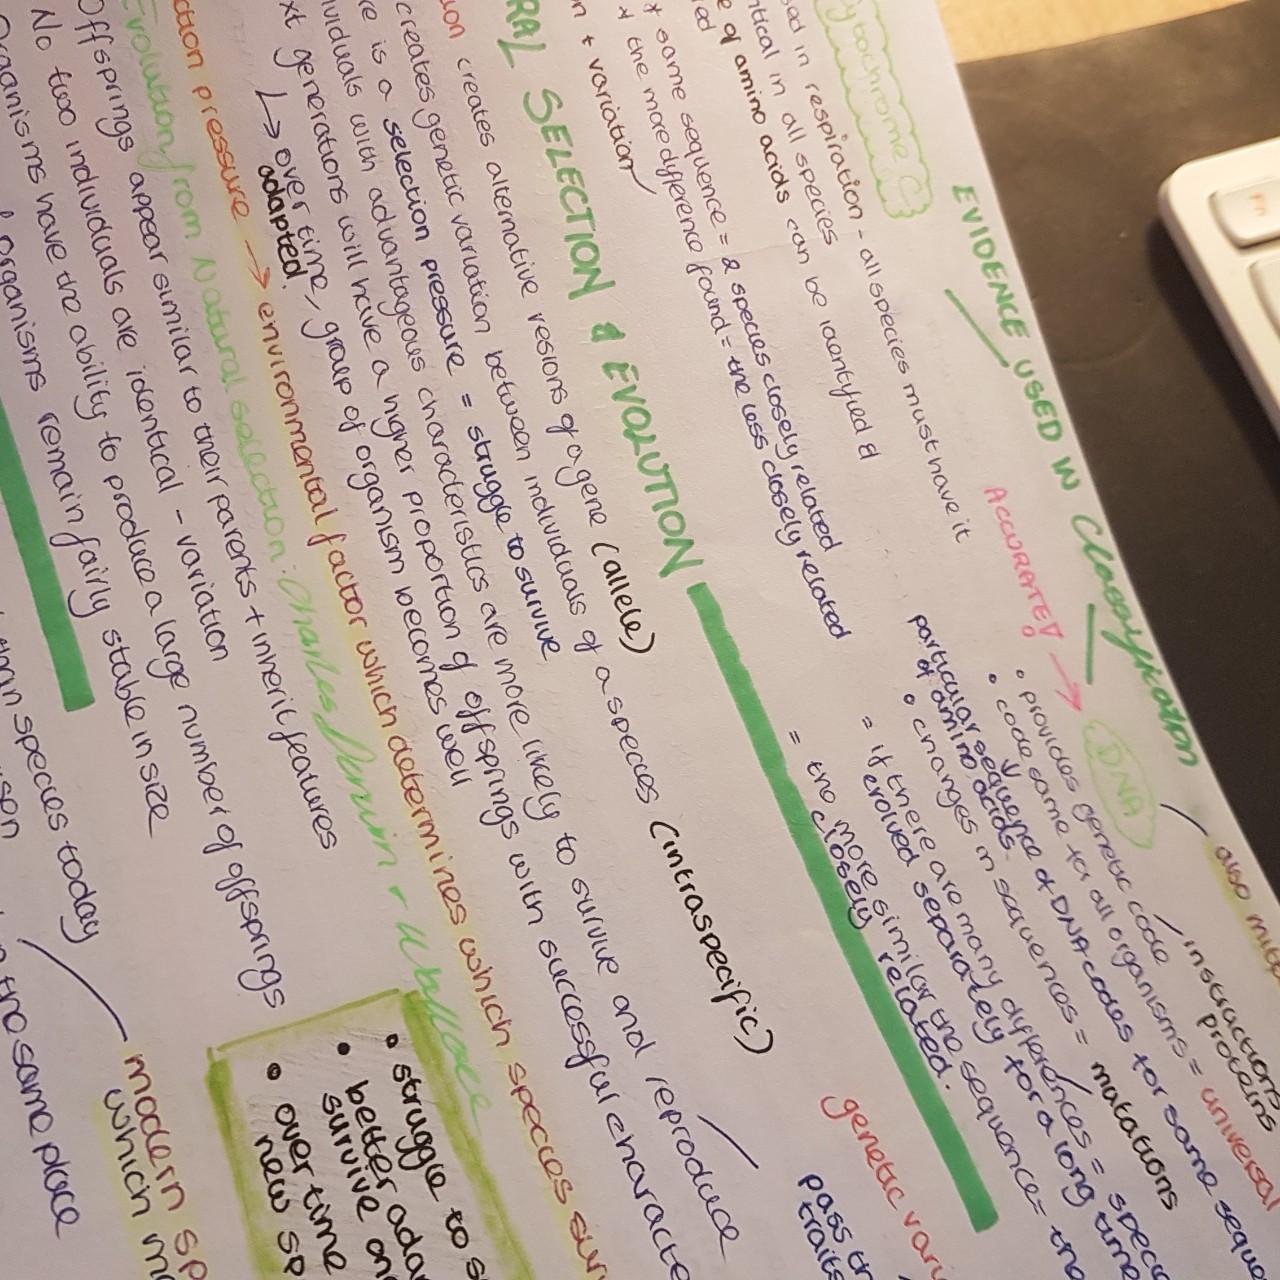 EVIDENCE USED IN Classification
also
ACCURATE!
DNA
instructions
proteins
• provides genetic code
• code same for all organisms = universal
particular sequence of DNA codes for same seque
of amino acids.
• changes in sequences = mutations
= if there are many differences = speci
evolved separately for a long time
= the more similar the sequence = the
closely related.
ytochrome C
sed in respiration - all species must have it
ntical in all species
e of amino acids can be identified &
red
* same sequence = 2 species closely related
* the more difference found = the less closely related
n + variation
genetic vari
pass
traits
RAL SELECTION & EVOLUTION
ion creates alternative resions of a gene (allele)
creates genetic variation between individuals of a species (intraspecific)
re is a selection pressure = struggle to survive
viduals with advantageous characteristics are more likely to survive and reproduce
xt generations will have a higher proportion of offsprings with successful characte
↳ over time, group of organism becomes well
adapted.
ction pressure → environmental factor which determines which species sur
Evolution from Natural selection: Charles Darwin + Wallace
Offsprings appear similar to their parents + inherit features
No two individuals are identical - variation
Organisms have the ability to produce a large number of offsprings
organisms remain fairly stable in size
• struggle to s
• better adap
survive an
• over time
new sp
than species today
modern sp
which m
the same place